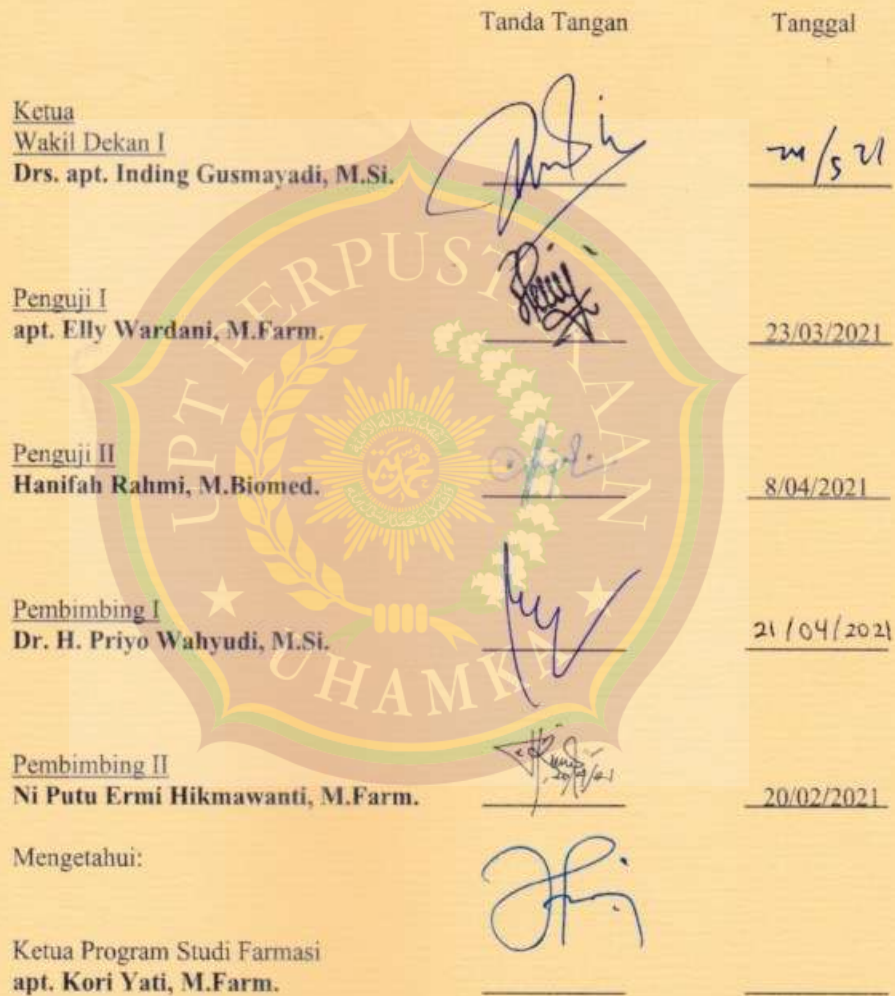 Tanda Tangan Tanggal
Ketua
Wakil Dekan I
Drs. apt. Inding Gusmayadi, M.Si. /5 21
Penguji I
apt. Elly Wardani, M.Farm. 23/03/2021
Penguji II
Hanifah Rahmi, M.Biomed. 8/04/2021
Pembimbing I
Dr. H. Priyo Wahyudi, M.Si. 21/04/2021
Pembimbing II
Ni Putu Ermi Hikmawanti, M.Farm. 20/02/2021
Mengetahui:
Ketua Program Studi Farmasi
apt. Kori Yati, M.Farm.
UPT PERPUSTAKAAN
UHAMKA